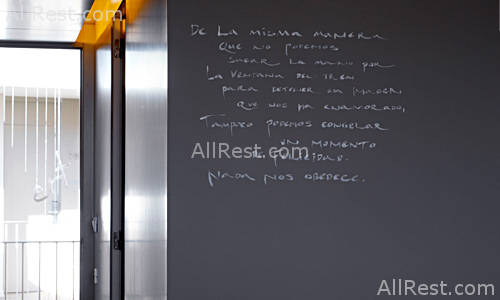 AllRest.com
DE LA MISMA MANERA
QUE NO PODEMOS
SACAR LA MANO POR
LA VENTANA DEL TREN
PARA DETENER UN IMAGEN
QUE NOS HA ENAMORADO,
TAMPOCO PODEMOS CONGELAR
UN MOMENTO
AllRest.com
DE FELICIDAD.
NADA NOS OBEDECE.
AllRest.com